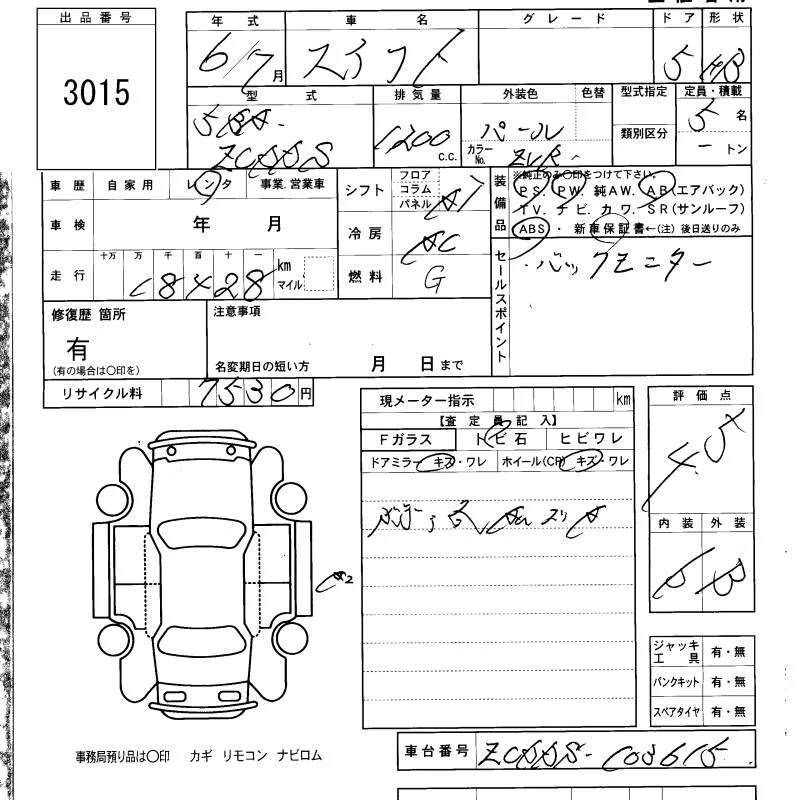 出品番号
3015
年式 車名 グレード ドア 形状
6/7月 スイフト 5 HB
型式 排気量 外装色 色替 型式指定 定員・積載
5BA- 1200 c.c. パール 5名
カラーNo. ZVR 類別区分 ー トン
車歴 自家用 レンタ 事業.営業車
シフト フロア コラム パネル AT
車検 年 月
冷房 AC
走行 十万 万 千 百 十 一
18428 km マイル
燃料 G
装備品
※純正のみ○印をつけて下さい。
PS. PW. 純AW. AB(エアバック)
TV. ナビ. カワ. SR(サンルーフ)
ABS ・ 新車保証書←(注) 後日送りのみ
セールスポイント
・バックモニター
修復歴 箇所
有
(有の場合は○印を)
注意事項
名変期日の短い方 月 日まで
リサイクル料 7530円
現メーター指示 km
【査定員記入】
Fガラス トビ石 ヒビワレ
ドアミラー キズ・ワレ ホイール(CP) キズ・ワレ
スリ
A2
評価点
4.5
内装 外装
B B
ジャッキ工具 有・無
パンクキット 有・無
スペアタイヤ 有・無
事務局預り品は○印 カギ リモコン ナビロム
車台番号